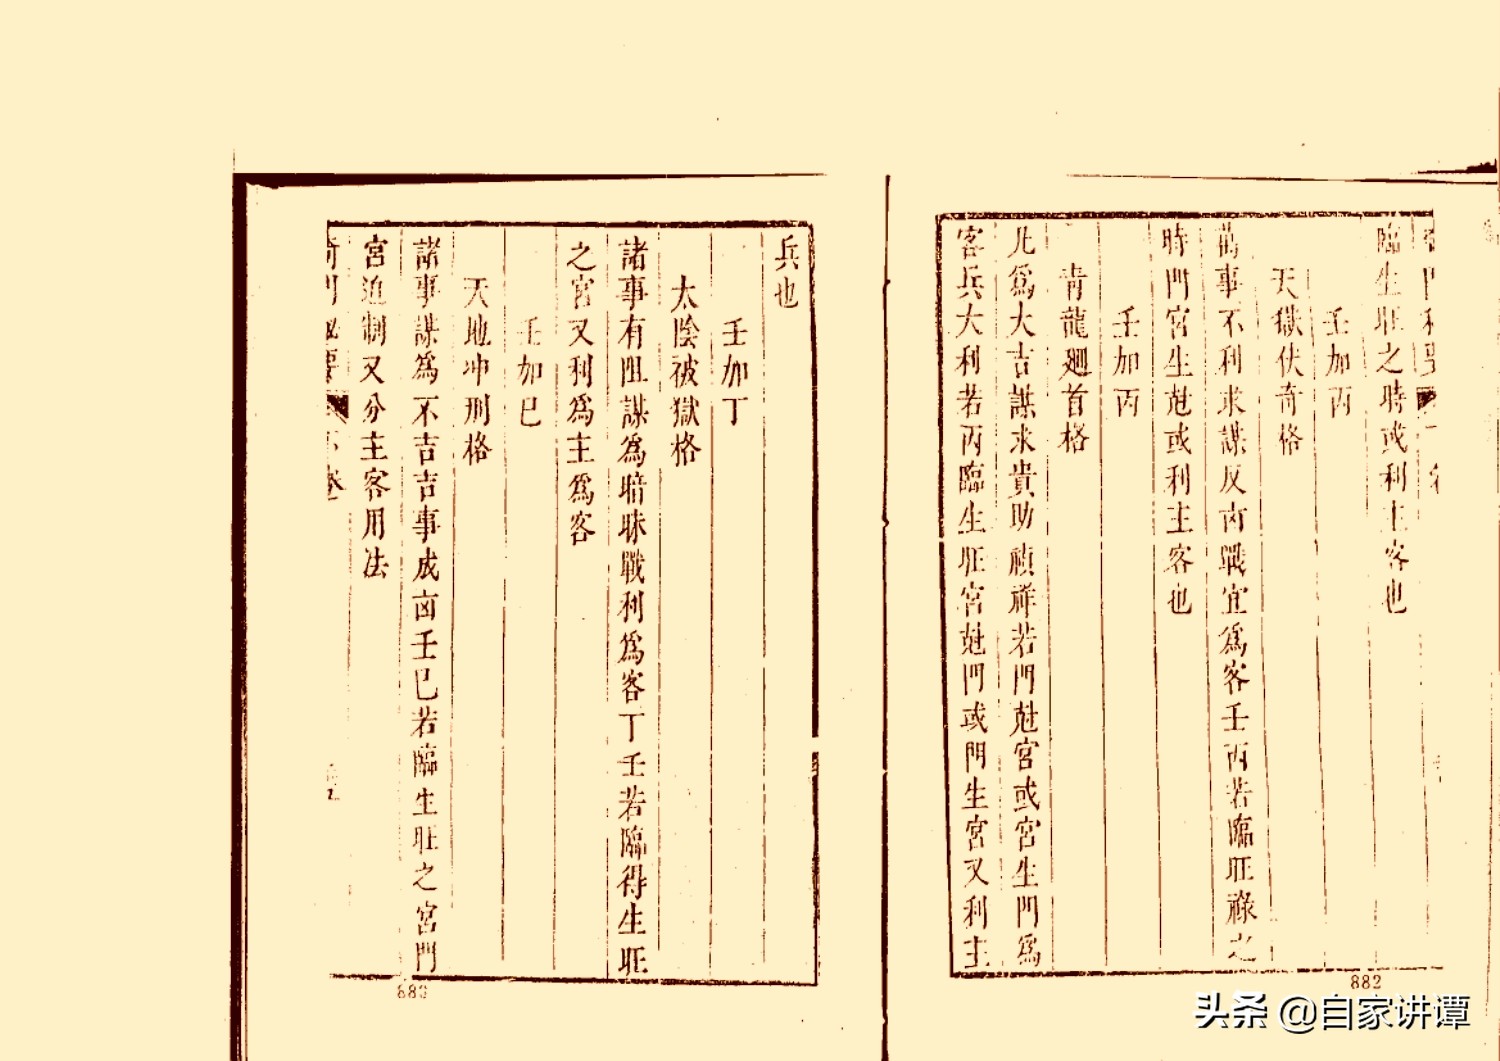 臨生旺之時或利主客也
壬加丙
天獄伏奇格
萬事不利求謀反凶戰宜為客壬丙若臨旺祿之
時門宮生尅或利主客也
壬加丙
青龍廻首格
凡為大吉謀求貴助禎祥若門尅宮或宮生門為
客兵大利若丙臨生旺宮尅門或門生宮又利主
882
兵也
壬加丁
太陰被獄格
諸事有阻謀為暗昧戰利為客丁壬若臨得生旺
之宮又利為主為客
壬加巳
天地冲刑格
諸事謀為不吉吉事成凶壬巳若臨生旺之宮門
宮迫制又分主客用法
883
头条 @自家讲谭